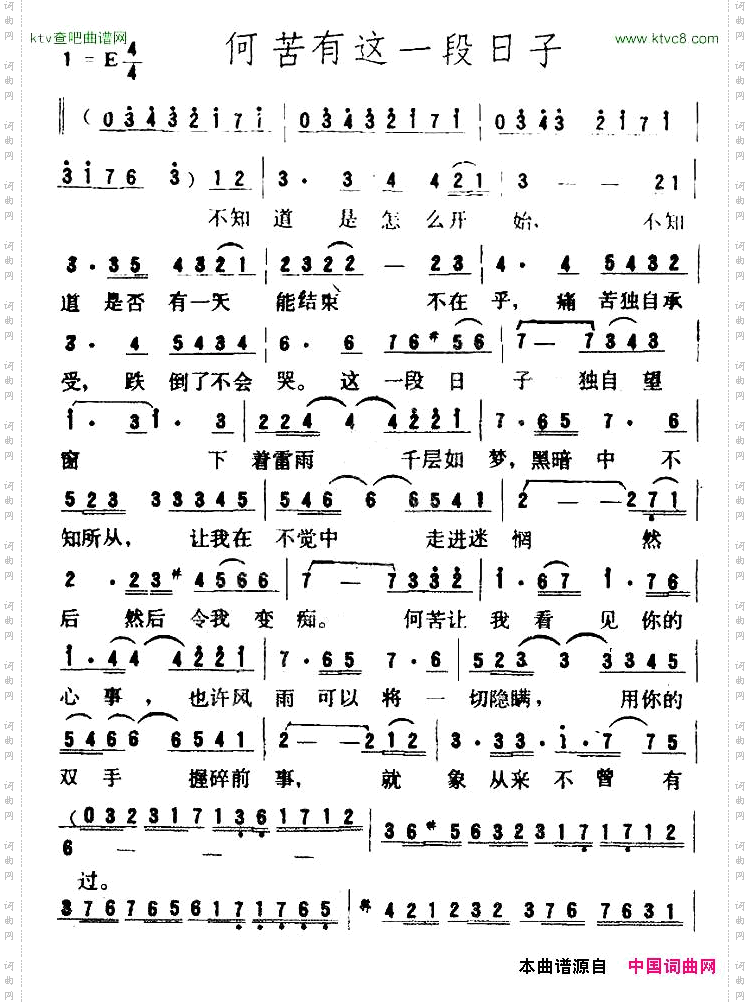 ktv查吧曲谱网
何苦有这一段日子
www.ktvc8.com
1=E 4/4
‖ (03432171 | 03432171 | 0343 2171 |
3176 3) 12 | 3· 3 4 4 21 | 3 — 21 |
不知 道 是 怎 么 开 始, 不知
3·35 4321 | 2322 — 23 | 4· 4 5432 |
道 是否 有一天 能结束 不在 乎, 痛 苦独自承
3· 4 5434 | 6· 6 76#56 | 7—7343 |
受, 跌 倒了不会 哭。这 一段 日 子 独自望
1· 31· 3 | 224 4 4 4221 | 7·65 7·6 |
窗 下 着雷雨 千层如 梦,黑暗 中 不
523 33345 | 546 6 6541 | 2——271 |
知所从, 让我在 不觉中 走进迷 惘 然
2·23# 4566 | 7—7332 | 1·67 1·76 |
后 然后 令我 变 痴。 何苦让 我 看 见 你的
1·44 4221 | 7·65 7·6 | 523 3 3345 |
心 事, 也许风 雨 可以 将 一 切隐瞒, 用你的
5466 6541 | 2—2212 | 3·3·1·7 75 |
双 手 握碎前 事, 就 象 从来 不 曾 有
(0323171361712 | 36#5632317 1712 |
6 — — —
过。
3767656171765 | #421232 3767631 |
本曲谱源自 中国词曲网
词曲网